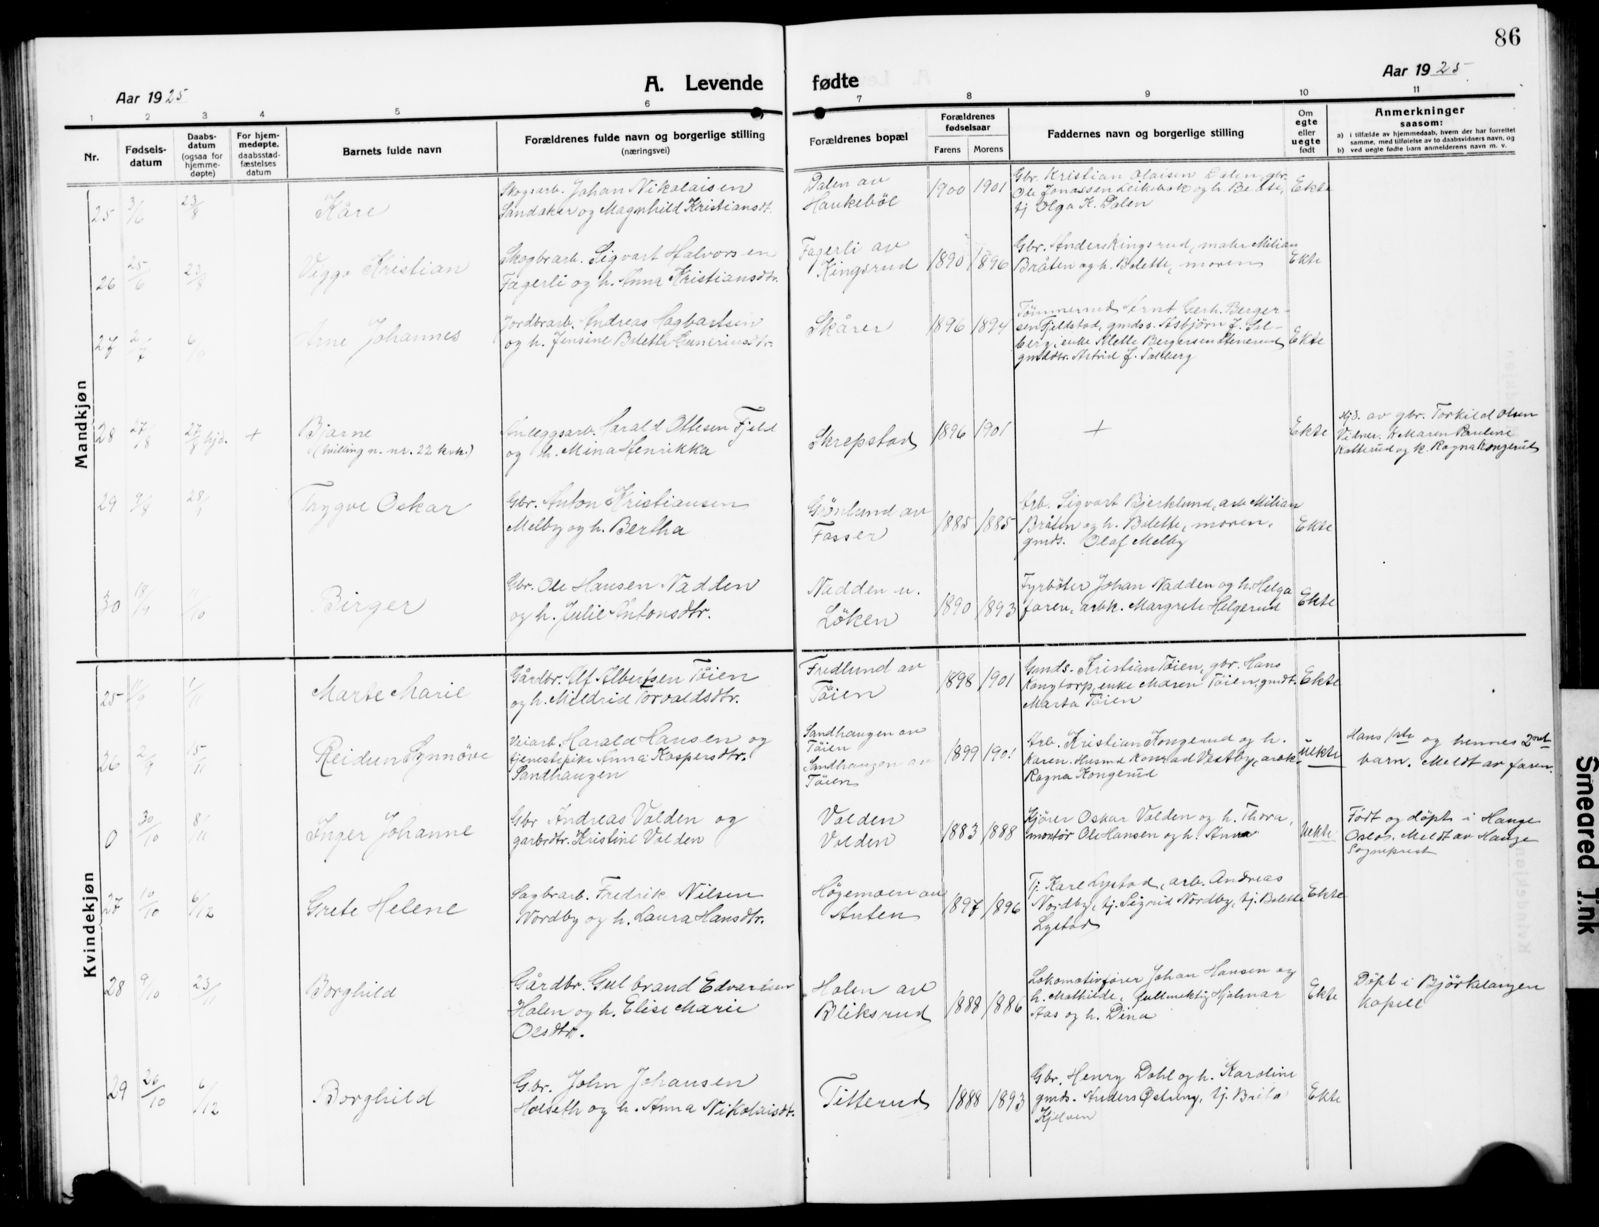 86
Aar 1925
A. Levende
fødte
Aar 1925
1 2 3 4 5 6 7 8 9 10 11
Nr.
Fødsels-
datum
Daabs-
datum
(ogsaa for
hjemme-
døpte)
For hjem-
medøpte.
daabsstad-
fæstelses
datum
Barnets fulde navn
Forældrenes fulde navn og borgerlige stilling
(næringsvei)
Forældrenes bopæl
Forældrenes
fødselsaar
Farens Morens
Faddernes navn og borgerlige stilling
Om
egte
eller
uegte
født
Anmerkninger
saasom:
a) i tilfælde av hjemmedaab, hvem der har forrettet
samme, med tilføielse av to daabsvidners navn, og
b) ved uegte fødte barn anmelderens navn m. v.
Mandkjøn
25 3/6 23/8 Kåre
Skogsarb. Johan Nikolaisen
Sandaker og Magnhild Kristiansdt.
Dalen av
Haukebøl
1900 1901
Gbr. Kristian Olaisen Dalen, gbr.
Ole Jonassen og h. Berthe,
tj. Olga K. Dalen
Ekte
26 25/6 23/8 Viggo Kristian
Skogbrarb. Sigvart Halvorsen
Fagerli og h. Anna Kristiansdtr.
Fagerli av
Kingsrud
1890 1896
Gbr. Anders Kingsrud, Milian
Bråten og h. Bolette, moren
Ekte
27 Arne Johannes
Jordbrarb. Andreas Hagbartsen
og h. Jensine Bolette Gunerinsdtr.
Skårer
1896 1894
Tømmermd. Arnt Gerh. Berger-
sen Fjelstad, gmds. Asbjörn J. Sol-
berg, enke Klette Bergersen
gmdtr. Astrid J. Solberg
Ekte
28 27/8 27/8 hjd. + Bjarne
(tvilling m. nr. 22 kvk.)
Anleggsarb. Harald Ottesen Fjeld
og h. Mina Henrikka
Skrepstad
1896 1901
+
Ekte
Hjd. av gbr. Torkild Olsen
Vidner. Maren Pauline
Katterud og k. Ragna Kongerud
29 9/8 Trygve Oskar
Gbr. Anton Kristiansen
Melby og h. Bertha
Grönlund av
Fosser
1885 1885
Arb. Sigvart Bjerklund, arb. Milian
Bråten og h. Bolette, moren,
gmds. Olaf Melby
Ekte
30 Birger
Gbr. Ole Hansen Nadden
og h. Julie Antonsdtr.
Nadden u.
Löken
1890 1893
Fyrböter Johan Nadden og h. Helga
faren, arbk. Margrete Helgerud
Ekte
Kvindekjøn
25 Marte Marie
Gårdbr. Alf Albertsen Töien
og h. Meldrid Torvaldsdtr.
Fredlund av
Töien
1898 1901
Gmds. Kristian Töien, gbr. Hans
Kongtorp, enke Maren Töien, gmdt.
Marta Töien
Ekte
26 15/11 Reidun Synnöve
Veiarb. Harald Hansen og
tjenestepike Anna Kaspersdtr.
Sandhaugen
Sandhaugen av
Töien
Sandhaugen av
Töien
1899 1901
Arb. Kristian Kongerud og h.
Karen. Husmd Konrad Vestby, arbk.
Ragna Kongerud
Uekte
Hans 1ste og hennes 2net
barn. Meldt av faren.
0 30/10 8/11 Inger Johanne
Gbr Andreas Volden og
garbrdtr. Kristine Volden
Volden
Volden
1883 1888
Kjörer Oskar Volden og h. Thora,
montör Ole Hansen og h. Anna
Uekte
Födt og döpt i Hauge
Oslo. Meldt av Hauge
Sogneprest
27 10/10 6/12 Grete Helene
Sagbrarb. Fredrik Nilsen
Nordby og h. Laura Hansdtr.
Högemoen av
Anten
1897 1896
Tj. Kare Lystad, arb. Andreas
Nordby, tj. Sigrid Nordby, tj. Bolette
Lystad
Ekte
28 9/10 23/11 Borghild
Gårdbr. Gulbrand Edvardsen
Holen og h. Elise Marie
Olsdtr.
Holen av
Bliksrud
1888 1886
Lokomotivförer Johan Hansen og
h. Mathilde, fullmektig Hjalmar
Aas og h. Dina
Ekte
Döpt i Björkelangen
kapell
29 26/10 6/12 Borghild
Gbr. John Johansen
Holseth og h. Anna Nikolaisdt.
Titterud
1888 1893
Gbr. Henry Dahl og h. Karoline
gmds. Anders Östreng, tj. Brita
Kjelven
Ekte
Smeared Ink